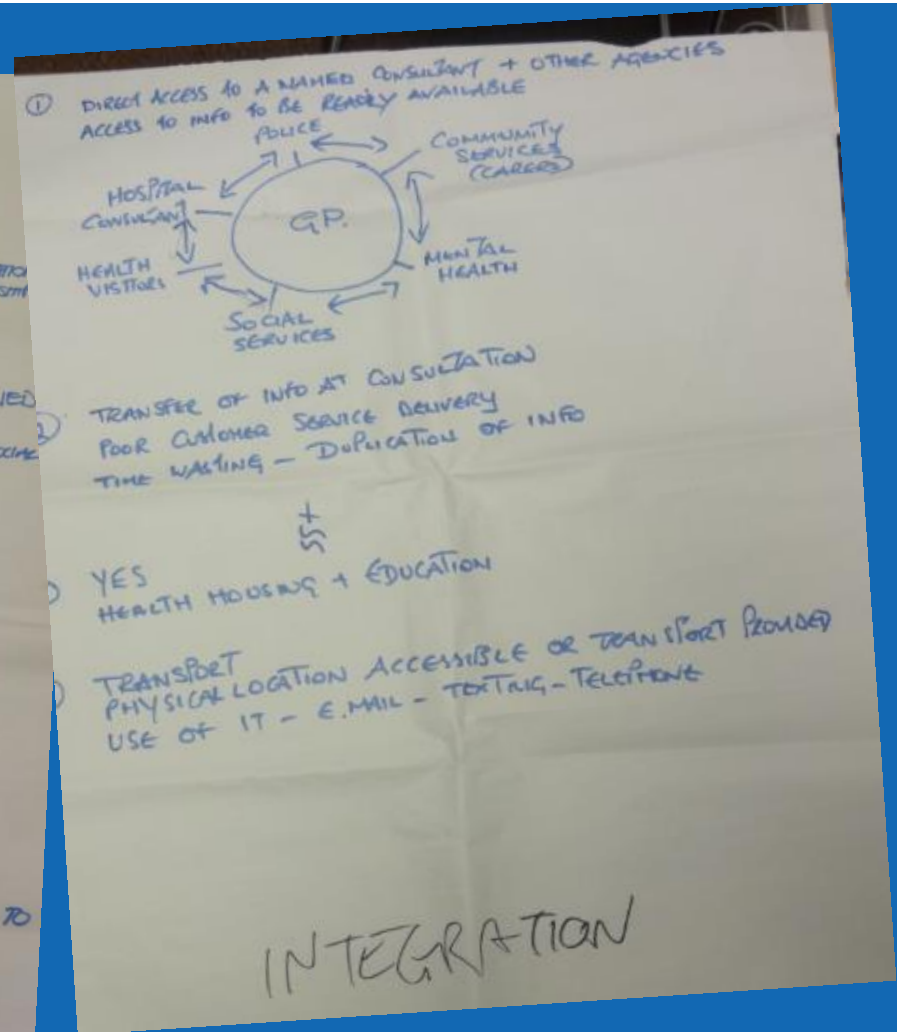 ① DIRECT ACCESS TO A NAMED CONSULTANT + OTHER AGENCIES
ACCESS TO INFO TO BE READILY AVAILABLE
POLICE
COMMUNITY
SERVICES
(CARERS)
HOSPITAL
CONSULTANT
GP.
HEALTH
VISITORS
MENTAL
HEALTH
SOCIAL
SERVICES
TRANSFER OF INFO AT CONSULTATION
POOR CUSTOMER SERVICE DELIVERY
TIME WASTING – DUPLICATION OF INFO
+
YES
HEALTH HOUSING + EDUCATION
TRANSPORT
PHYSICAL LOCATION ACCESSIBLE OR TRANSPORT PROVIDED
USE OF IT – E.MAIL – TEXTING – TELEPHONE
TO
INTEGRATION